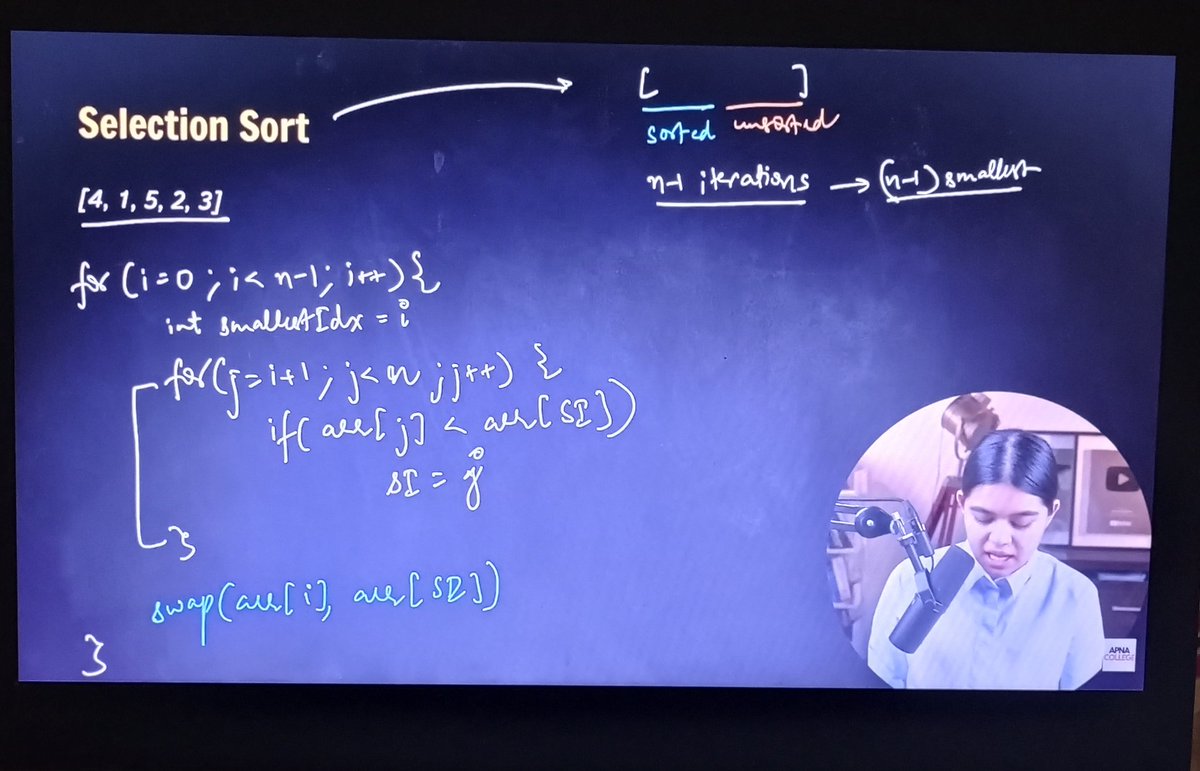 Selection Sort
[4, 1, 5, 2, 3]
[ ]
sorted unsorted
n-1 iterations → (n-1) smallest
for (i=0 ; i< n-1; i++){
int smallestIdx = i
for(j=i+1 ; j<n ; j++) {
if( arr[j] < arr[SI])
SI = j
}
swap(arr[i], arr[SI])
}
APNA
COLLEGE